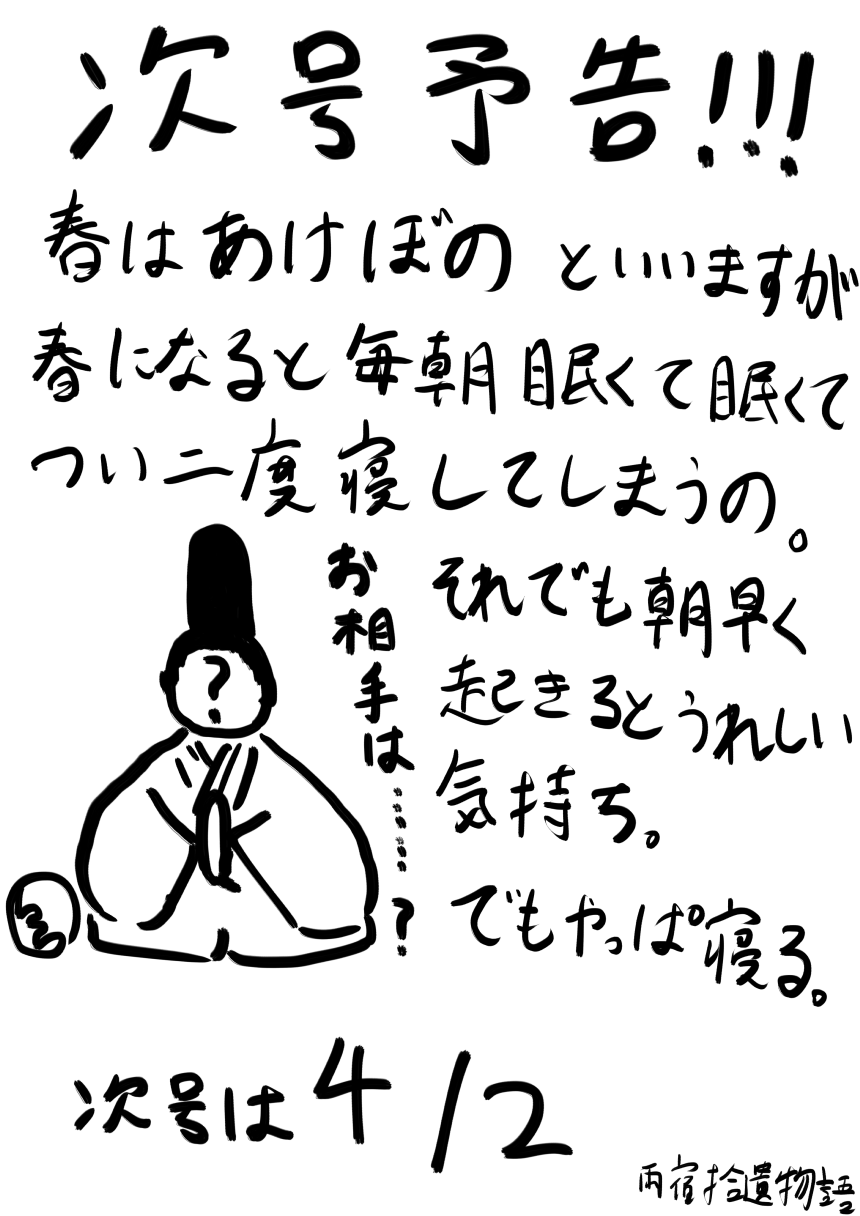 次号予告!!!
春はあけぼの といいますが
春になると毎朝眠くて眠くて
つい二度寝してしまうの。
それでも朝早く
起きるとうれしい
気持ち。
でもやっぱ寝る。
お相手は………?
?
次号は4/2
雨宿拾遺物語